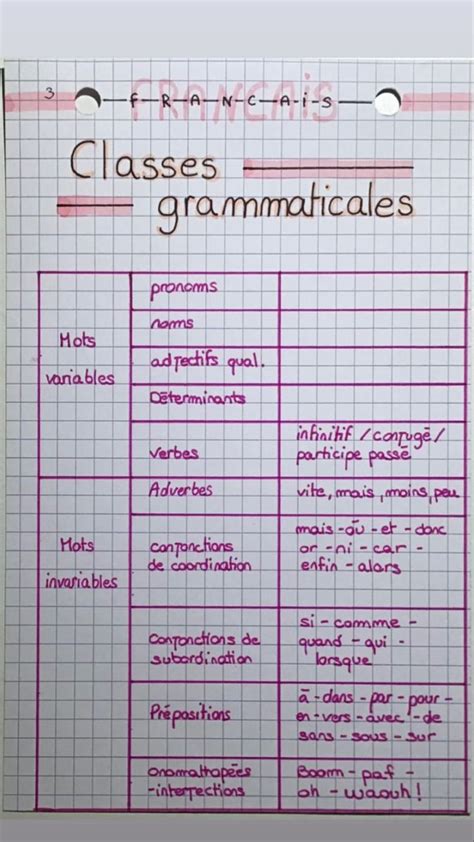 3
FRANCAIS
F-R-A-N-C-A-i-S
Classes
grammaticales
Mots
variables
pronoms
noms
adjectifs qual.
Déterminants
verbes
infinitif / conjugé /
participe passé
Mots
invariables
Adverbes
vite, mais, moins, peu
conjonctions
de coordination
mais - où - et - donc
or - ni - car -
enfin - alors
Conjonctions de
subordination
si - comme -
quand - qui -
lorsque
Prépositions
à - dans - par - pour -
en - vers - avec - de
sans - sous - sur
onomathopées
- interjections
Boom - paf -
oh - waouh !